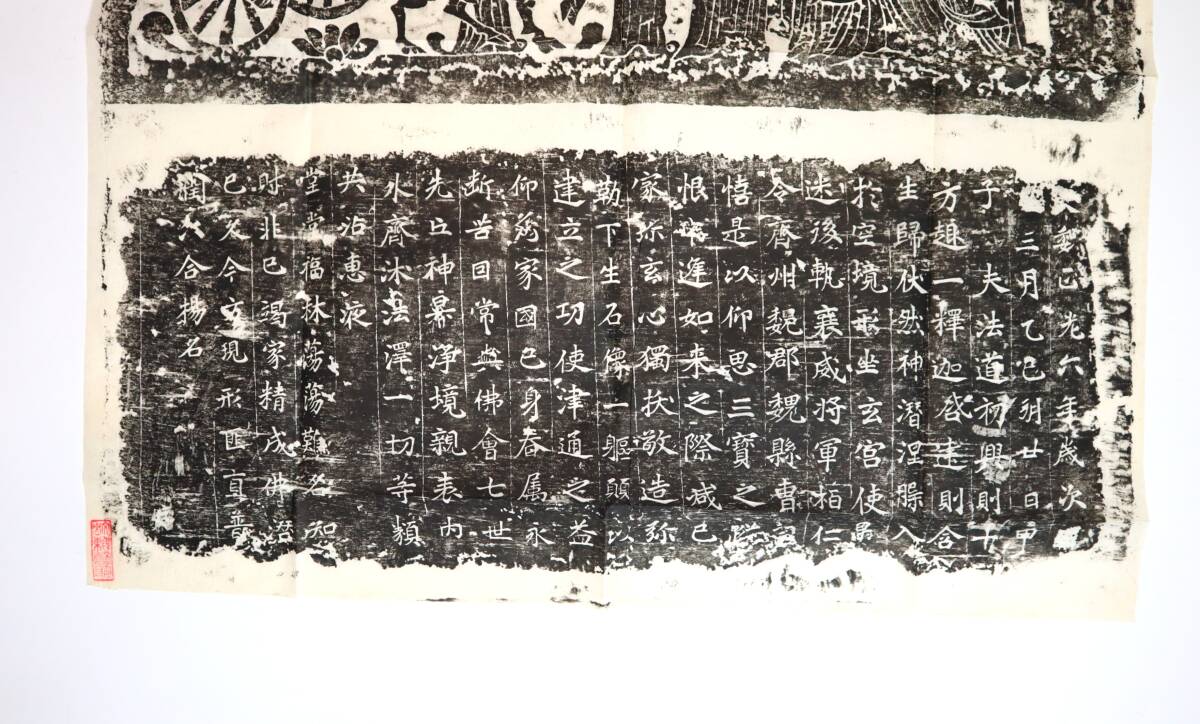 大魏正光六年歲次
三月乙巳朔廿日甲
子夫法道初興則十
方趣一釋迦啟建則含
生歸伏然神潛涅槃入
於空境形坐玄宮使愚
迷後軌襄威將軍栢仁
令齊州魏郡魏縣曹望
憘是以仰思三寶之蹤
恨未逢如来之際减已
家珎玄心獨扶敬造弥
勒下生石像一軀願以
建立之功使津通之益
仰爲家國己身眷属永
断苦因常與佛會七世
先亡神昇淨境親表内
外齊沐法澤一切等類
共沾惠液
堂堂福林蕩蕩難名知
財非己竭家精成佛潛
已久今方現形匪直普
潤六合揚名